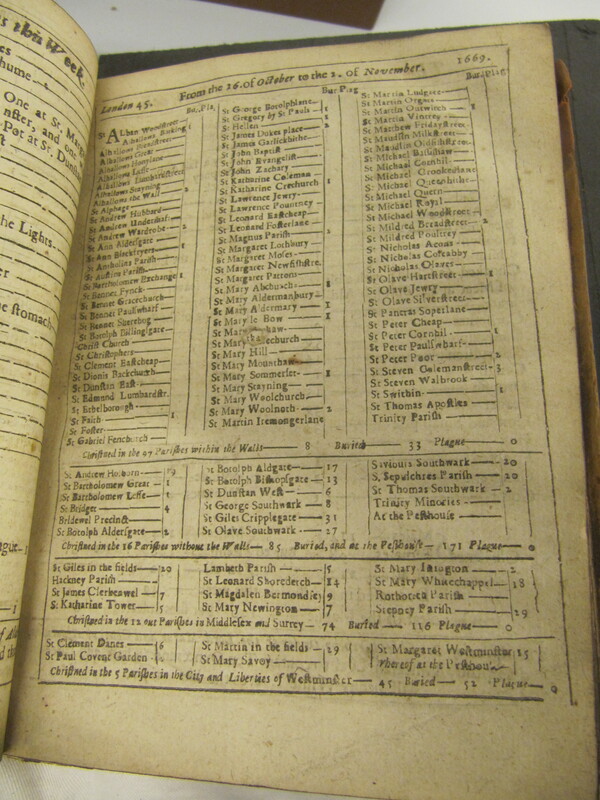 this Week.
London 45. From the 26. of October to the 2. of November. 1669.
Bu. Pla.
St Alban Woodstreet
Alhallows Barking
Alhallows Breadstreet
Alhallows Great
Alhallows Honylane
Alhallows Lesse
Alhallows Lumbardstreet
Alhallows Stayning
Alhallows the Wall 2
St Alphage
St Andrew Hubbard
St Andrew Undershaft
St Andrew Wardrobe 2
St Ann Aldersgate
St Ann Blackfryers
St Antholins Parish
St Austins Parish
St Bartholomew Exchange 1
St Bennet Fynch
St Bennet Gracechurch
St Bennet Paulswharf
St Bennet Sherehog
St Botolph Billingsgate
Christ Church
St Christophers
St Clement Eastcheap
St Dionis Backchurch
St Dunstan East
St Edmund Lumbardstr.
St Ethelborough
St Faith 1
St Foster
St Gabriel Fenchurch
Bur Plag
St George Botolphlane
St Gregory by St Pauls
St Hellen
St James Dukes place
St James Garlickhithe
St John Baptist
St John Evangelist
St John Zachary
St Katharine Coleman
St Katharine Crechurch 1
St Lawrence Jewry
St Lawrence Pountney
St Leonard Eastcheap
St Leonard Fosterlane
St Magnus Parish 2
St Margaret Lothbury
St Margaret Moses
St Margaret Newfishstre.
St Margaret Pattons
St Mary Abchurch 1
St Mary Aldermanbury
St Mary Aldermary 1
St Mary le Bow 1
St Mary
St Mary
St Mary Hill
St Mary Mounthaw
St Mary Sommerset 1
St Mary Stayning
St Mary Woolchurch
St Mary Woolnoth 2
St Martin Iremongerlane
Bur. Plag
St Martin Ludgate
St Martin Orgars
St Martin Outwitch
St Martin Vintrey
St Matthew Fridaystreet
St Maudlin Milkstreet
St Maudlin Oldfishstreet
St Michael Bassishaw
St Michael Cornhil
St Michael Crookedlane
St Michael Queenhithe
St Michael Quern
St Michael Royal
St Michael Woodstreet
St Mildred Breadstreet 2
St Mildred Poultrey
St Nicholas Acons
St Nicholas Coleabby
St Nicholas Olaves
St Olave Hartstreet 1
St Olave Jewry
St Olave Silverstreet
St Pancras Soperlane
St Peter Cheap
St Peter Cornhil 1
St Peter Paulswharf
St Peter Poor 2
St Steven Colemanstreet 3
St Steven Walbrook
St Swithin 1
St Thomas Apostles
Trinity Parish
Christned in the 97 Parishes within the Walls 8 Buried 33 Plague 0
St Andrew Holborn 19
St Bartholomew Great 1
St Bartholomew Lesse 1
St Bridget 4
Bridewel Precinct
St Botolph Aldersgate 2
St Botolph Aldgate 17
St Botolph Bishopsgate 13
St Dunstan West 6
St George Southwark 8
St Giles Cripplegate 31
St Olave Southwark 27
Saviours Southwark 20
S. Sepulchres Parish 20
St Thomas Southwark 2
Trinity Minories
At the Pesthouse
Christned in the 16 Parishes without the Walls 85 Buried, and at the Pesthouse 171 Plague 0
St Giles in the fields 20
Hackney Parish
St James Clerkenwel 7
St Katharine Tower 5
Lambeth Parish 5
St Leonard Shoreditch 14
St Magdalen Bermondsey 9
St Mary Newington 7
St Mary Islington 2
St Mary Whitechappel 18
Rothorith Parish
Stepney Parish 29
Christned in the 12 out Parishes in Middlesex and Surrey 74 Buried 116 Plague 0
St Clement Danes 6
St Paul Covent Garden
St Martin in the fields 29
St Mary Savoy
St Margaret Westminster 15
Whereof at the Pesthouse
Christned in the 5 Parishes in the City and Liberties of Westminster 45 Buried 52 Plague 0